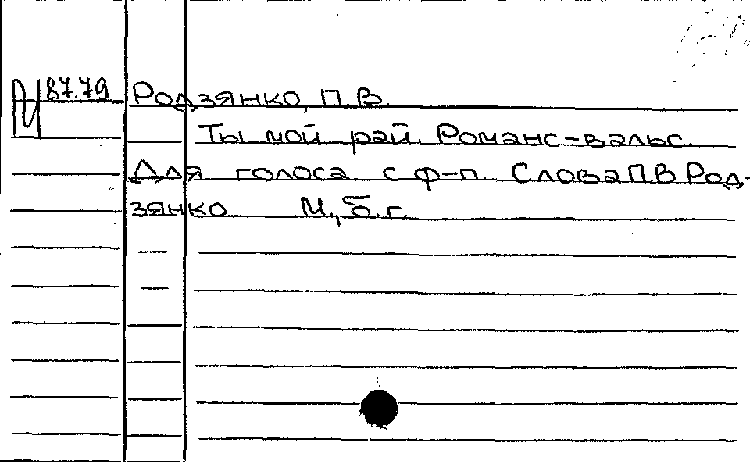 87.79 Родзянко, П.В.
Ты мой рай. Романс-вальс.
Для голоса с ф-п. Слова П.В. Род-
зянко М., б.г.